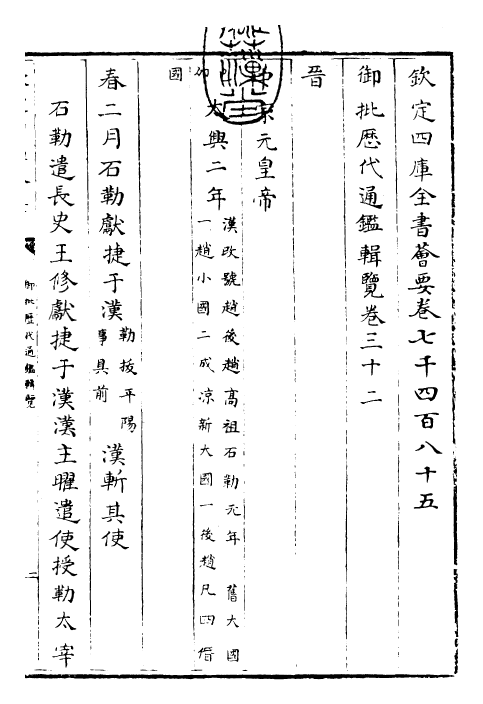 欽定四庫全書薈要卷七千四百八十五
御批歷代通鑑輯覽卷三十二
晉
元皇帝
太興二年漢改號趙後趙高祖石勒元年 舊大國
一趙小國二成涼新大國一後趙凡四僭
國
春二月石勒獻捷于漢勒拔平陽
事具前漢斬其使
石勒遣長史王修獻捷于漢漢主曜遣使授勒太宰
御批歷代通鑑輯覽